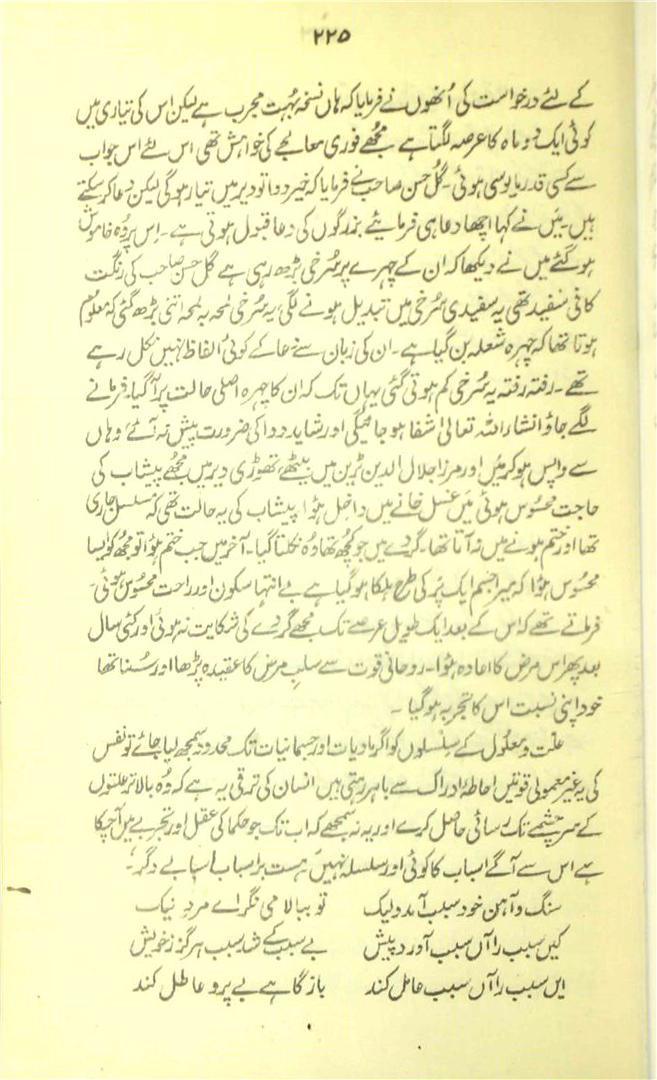 ۲۲۵
کے لئے درخواست کی اُنھوں نے فرمایا کہ ہاں نسخہ بہُت مجرب ہے لیکن اس کی تیاری میں
کوئی ایک دو ماہ کا عرصہ لگتا ہے مجھے فوری معالجے کی خواہش تھی اس لئے اس جواب
سے کسی قدر مایوسی ہوئی۔ گُل حسن صاحب نے فرمایا کہ خیر دوا تو دیر میں تیار ہوگی لیکن دعا کر سکتے
ہیں۔ میَں نے کہا اچھا دعا ہی فرمایئے بزرگوں کی دعا قبول ہوتی ہے۔ اِس پر وُہ خاموش
ہو گئے میں نے دیکھا کہ ان کے چہرے پر سُرخی بڑھ رہی ہے گل حسن صاحب کی رنگت
کافی سفید تھی یہ سفیدی سُرخی میں تبدیل ہونے لگی، یہ سُرخی لمحہ بہ لمحہ اتنی بڑھ گئی کہ معلوُم
ہوتا تھا کہ چہرہ شعلہ بن گیا ہے۔ ان کی زبان سے دعا کے کوئی الفاظ نہیں نکل رہے
تھے۔ رفتہ رفتہ یہ سُرخی کم ہوتی گئی یہاں تک کہ ان کا چہرہ اصلی حالت پر آ گیا، فرمانے
لگے جاؤ انشاء اللہ تعالیٰ شفا ہو جائیگی اور شاید دوا کی ضرورت پیش نہ آئے، وہاں
سے واپس ہو کر میَں اور مرزا جلال الدین ٹرین میں بیٹھے، تھوڑی دیر میں مجھے پیشاب کی
حاجت محسُوس ہوئی میَں غسل خانے میں داخل ہُوا، پیشاب کی یہ حالت تھی کہ مسلسل جاری
تھا اور ختم ہونے میں نہ آتا تھا۔ گردے میں جو کچھ تھا وُہ نکلتا گیا۔ آخر میں جب ختم ہُوا تو مجھ کو ایسا
محسُوس ہُوا کہ میرا جسم ایک پَر کی طرح ہلکا ہو گیا ہے بے انتہا سکون اور راحت محسُوس ہوئی۔
فرماتے تھے کہ اس کے بعد ایک طویل عرصے تک مجھے گُردے کی شکایت نہ ہوئی اور کئی سال
بعد پھر اس مرض کا اعادہ ہُوا۔ روحانی قوت سے سلبِ مرض کا عقیدہ پڑھا اور سُنا تھا
خود اپنی نسبت اس کا تجربہ ہو گیا۔
علت و معلُول کے سِلسلوں کو اگر مادیات اور جسمانیات تک محدود سمجھ لیا جائے تو نفس
کی یہ غیر معمولی قوتیں احاطۂ ادراک سے باہر رہتی ہیں انسان کی ترقی یہ ہے کہ وُہ بالاتر علتوں
کے سرچشمے تک رسائی حاصل کرے اور یہ نہ سمجھے کہ اب تک جو حکما کی عقل اور تجربے میں آچکا
ہے اس سے آگے اسباب کا کوئی اور سلسلہ نہیں ’ہست بر اسباب اسبابے دگر‘؎
سنگ و آہن خود سبب آمد ولیک    تو ببالا می نگر اے مردِ نیک
کیں سبب را آں سبب آورد پیش    بے سبب کے شد سبب ہرگز زخویش
ایں سبب را آں سبب عامل کند    باز گاہے بے پر و عاطل کند